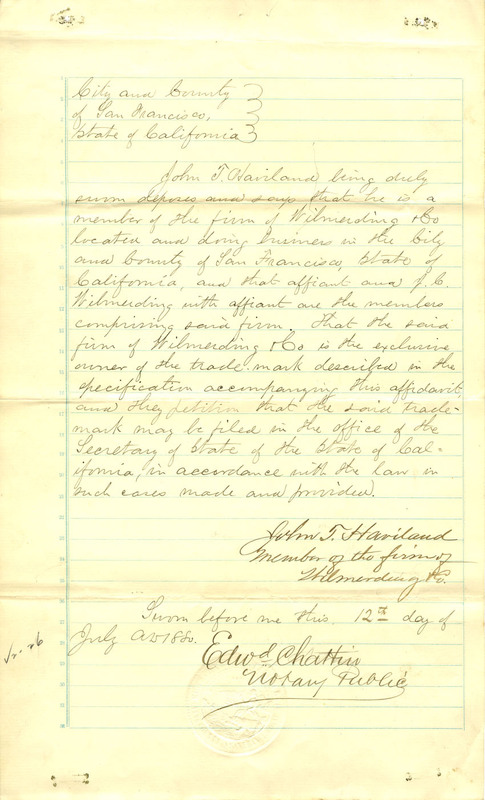 City and County
of San Francisco,
State of California
John T. Haviland being duly
sworn deposes and says that he is a
member of the firm of Wilmerding & Co
located and doing business in the City
and County of San Francisco, State of
California, and that affiant and J. C.
Wilmerding with affiant are the members
comprising said firm. That the said
firm of Wilmerding & Co is the exclusive
owner of the trade-mark described in the
specification accompanying this affidavit,
and they petition that the said trade-
mark may be filed in the office of the
Secretary of State of the State of Cal-
ifornia, in accordance with the law in
such cases made and provided.
John T. Haviland
Member of the firm of
Wilmerding & Co.
Sworn before me this 12th day of
July AD 1880.
Edwd Chattin
Notary Public